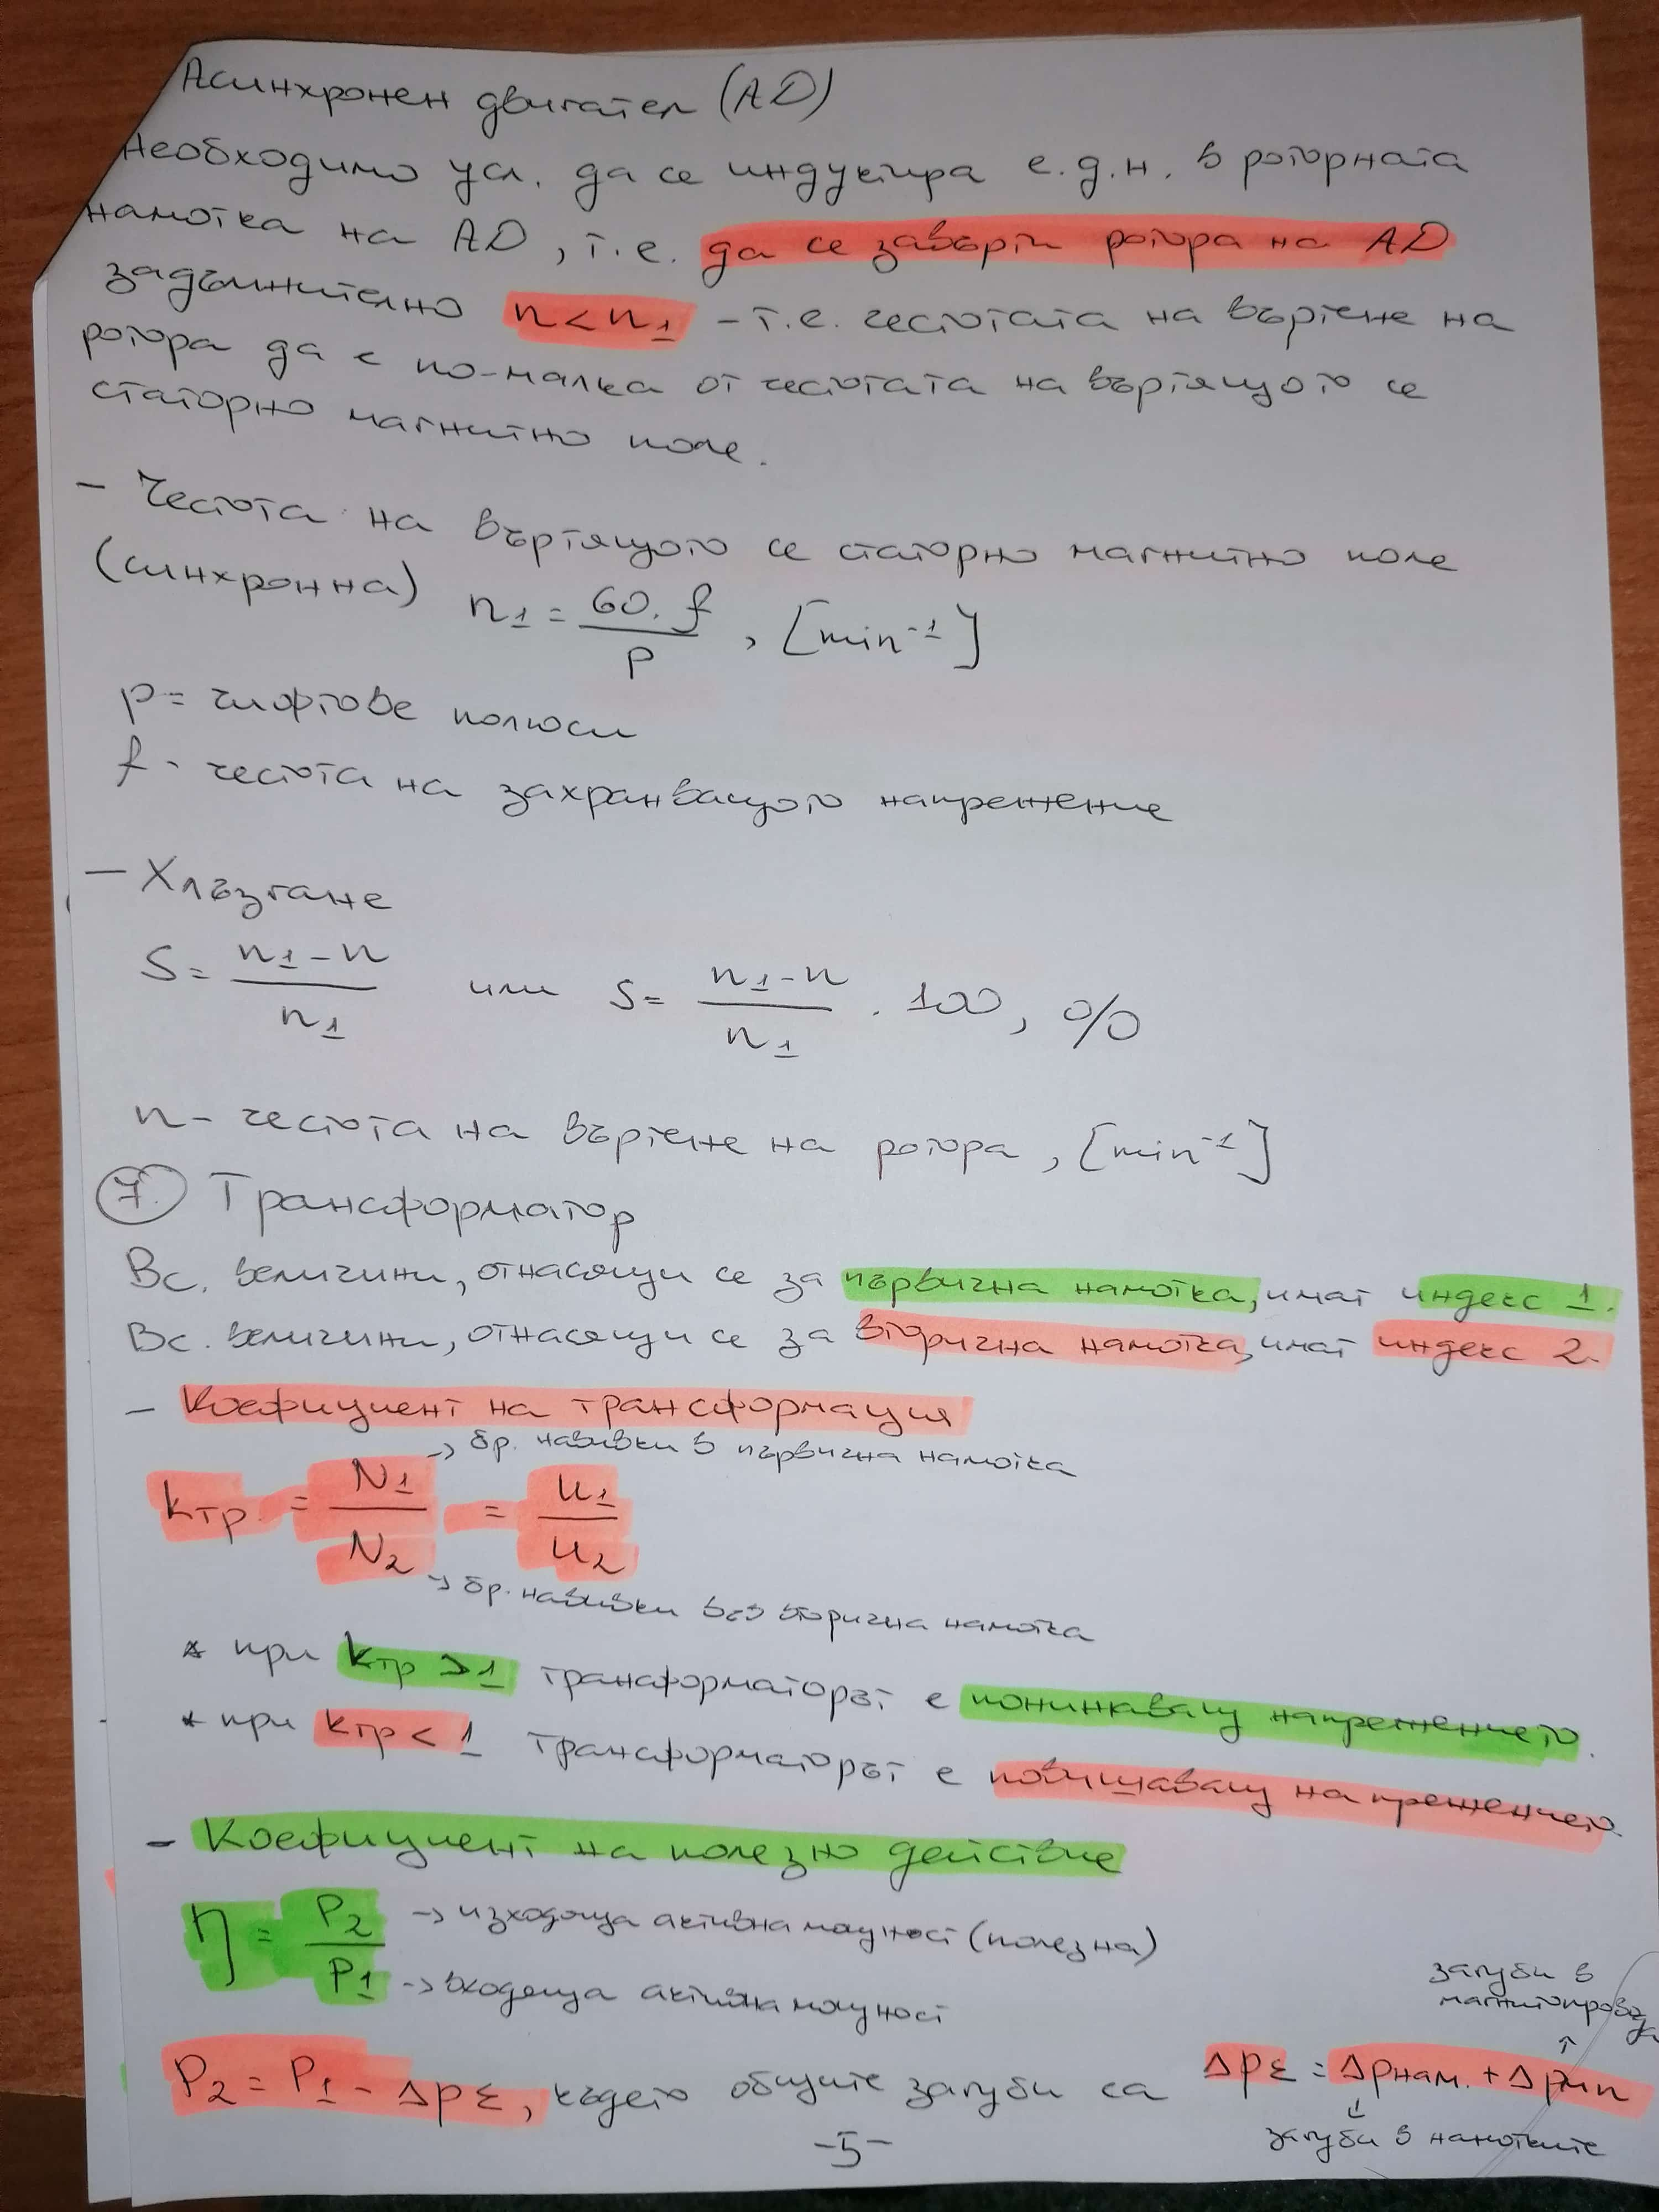 Асинхронен двигател (АД)
Необходимо усл. да се индуктира е.д.н. в роторната
намотка на АД, т.е. да се завърти ротора на АД
задължително n < n1 - т.е. честотата на въртене на
ротора да е по-малка от честотата на въртящото се
статорно магнитно поле.
- Честота на въртящото се статорно магнитно поле
(синхронна) n1 = 60. f / p , [min-1]
p = чифтове полюси
f - честота на захранващото напрежение
- Хлъзгане
S = n1 - n / n1 или S = n1 - n / n1 . 100, %
n - честота на въртене на ротора, [min-1]
7. Трансформатор
Вс. величини, отнасящи се за първична намотка, имат индекс 1.
Вс. величини, отнасящи се за вторична намотка, имат индекс 2.
- Коефициент на трансформация
→ бр. навивки в първична намотка
kтр. = N1 / N2 = U1 / U2
→ бр. навивки във вторична намотка
* при kтр > 1 трансформаторът е понижаващ напрежението.
* при kтр < 1 трансформаторът е повишаващ напрежението.
- Коефициент на полезно действие
η = P2 / P1
→ изходяща активна мощност (полезна)
→ входяща активна мощност
загуби в
магнитопровода
↑
P2 = P1 - ΔpΣ, където общите загуби са ΔpΣ = Δpнам. + Δpмп
↓
загуби в намотките
-5-